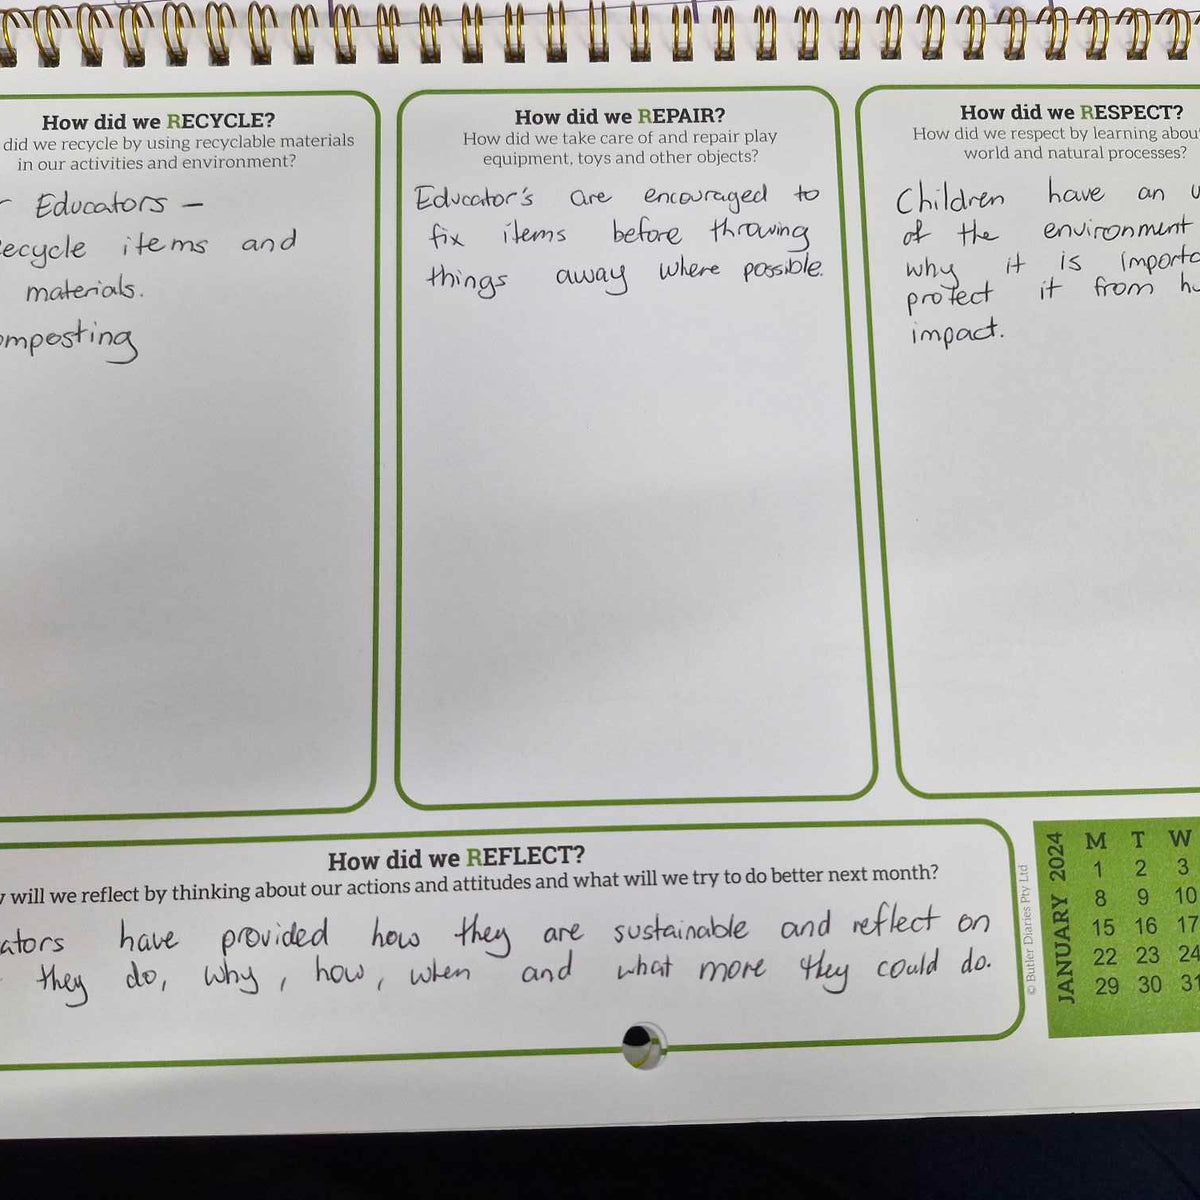 How did we RECYCLE?
did we recycle by using recyclable materials
in our activities and environment?
Educators –
ecycle items and
materials.
omposting
How did we REPAIR?
How did we take care of and repair play
equipment, toys and other objects?
Educator's are encouraged to
fix items before throwing
things away where possible.
How did we RESPECT?
How did we respect by learning about
world and natural processes?
Children have an
of the environment
why it is importa
protect it from hu
impact.
How did we REFLECT?
will we reflect by thinking about our actions and attitudes and what will we try to do better next month?
ators have provided how they are sustainable and reflect on
they do, why, how, when and what more they could do.
© Butler Diaries Pty Ltd
JANUARY 2024
M T W
1 2 3
8 9 10
15 16 17
22 23 24
29 30 31